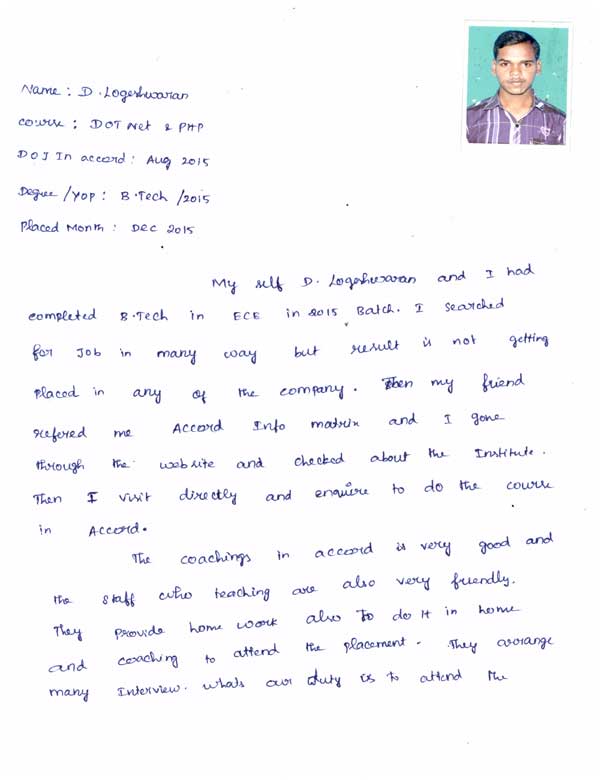 Name : D. Logeshwaran
course : DOT Net & PHP
DOJ In accord : Aug 2015
Degree /YOP : B.Tech /2015
Placed Month : DEC 2015
My self D. Logeshwaran and I had
completed B.Tech in ECE in 2015 Batch. I searched
for Job in many way but result is not getting
placed in any of the company. Then my friend
refered me Accord Info matrix and I gone
through the website and checked about the Institute.
Then I visit directly and enquire to do the course
in Accord.
The coachings in accord is very good and
the staff who teaching are also very friendly.
They provide home work also to do it in home
and coaching to attend the placement. They arrange
many Interview. whats our duty is to attend the